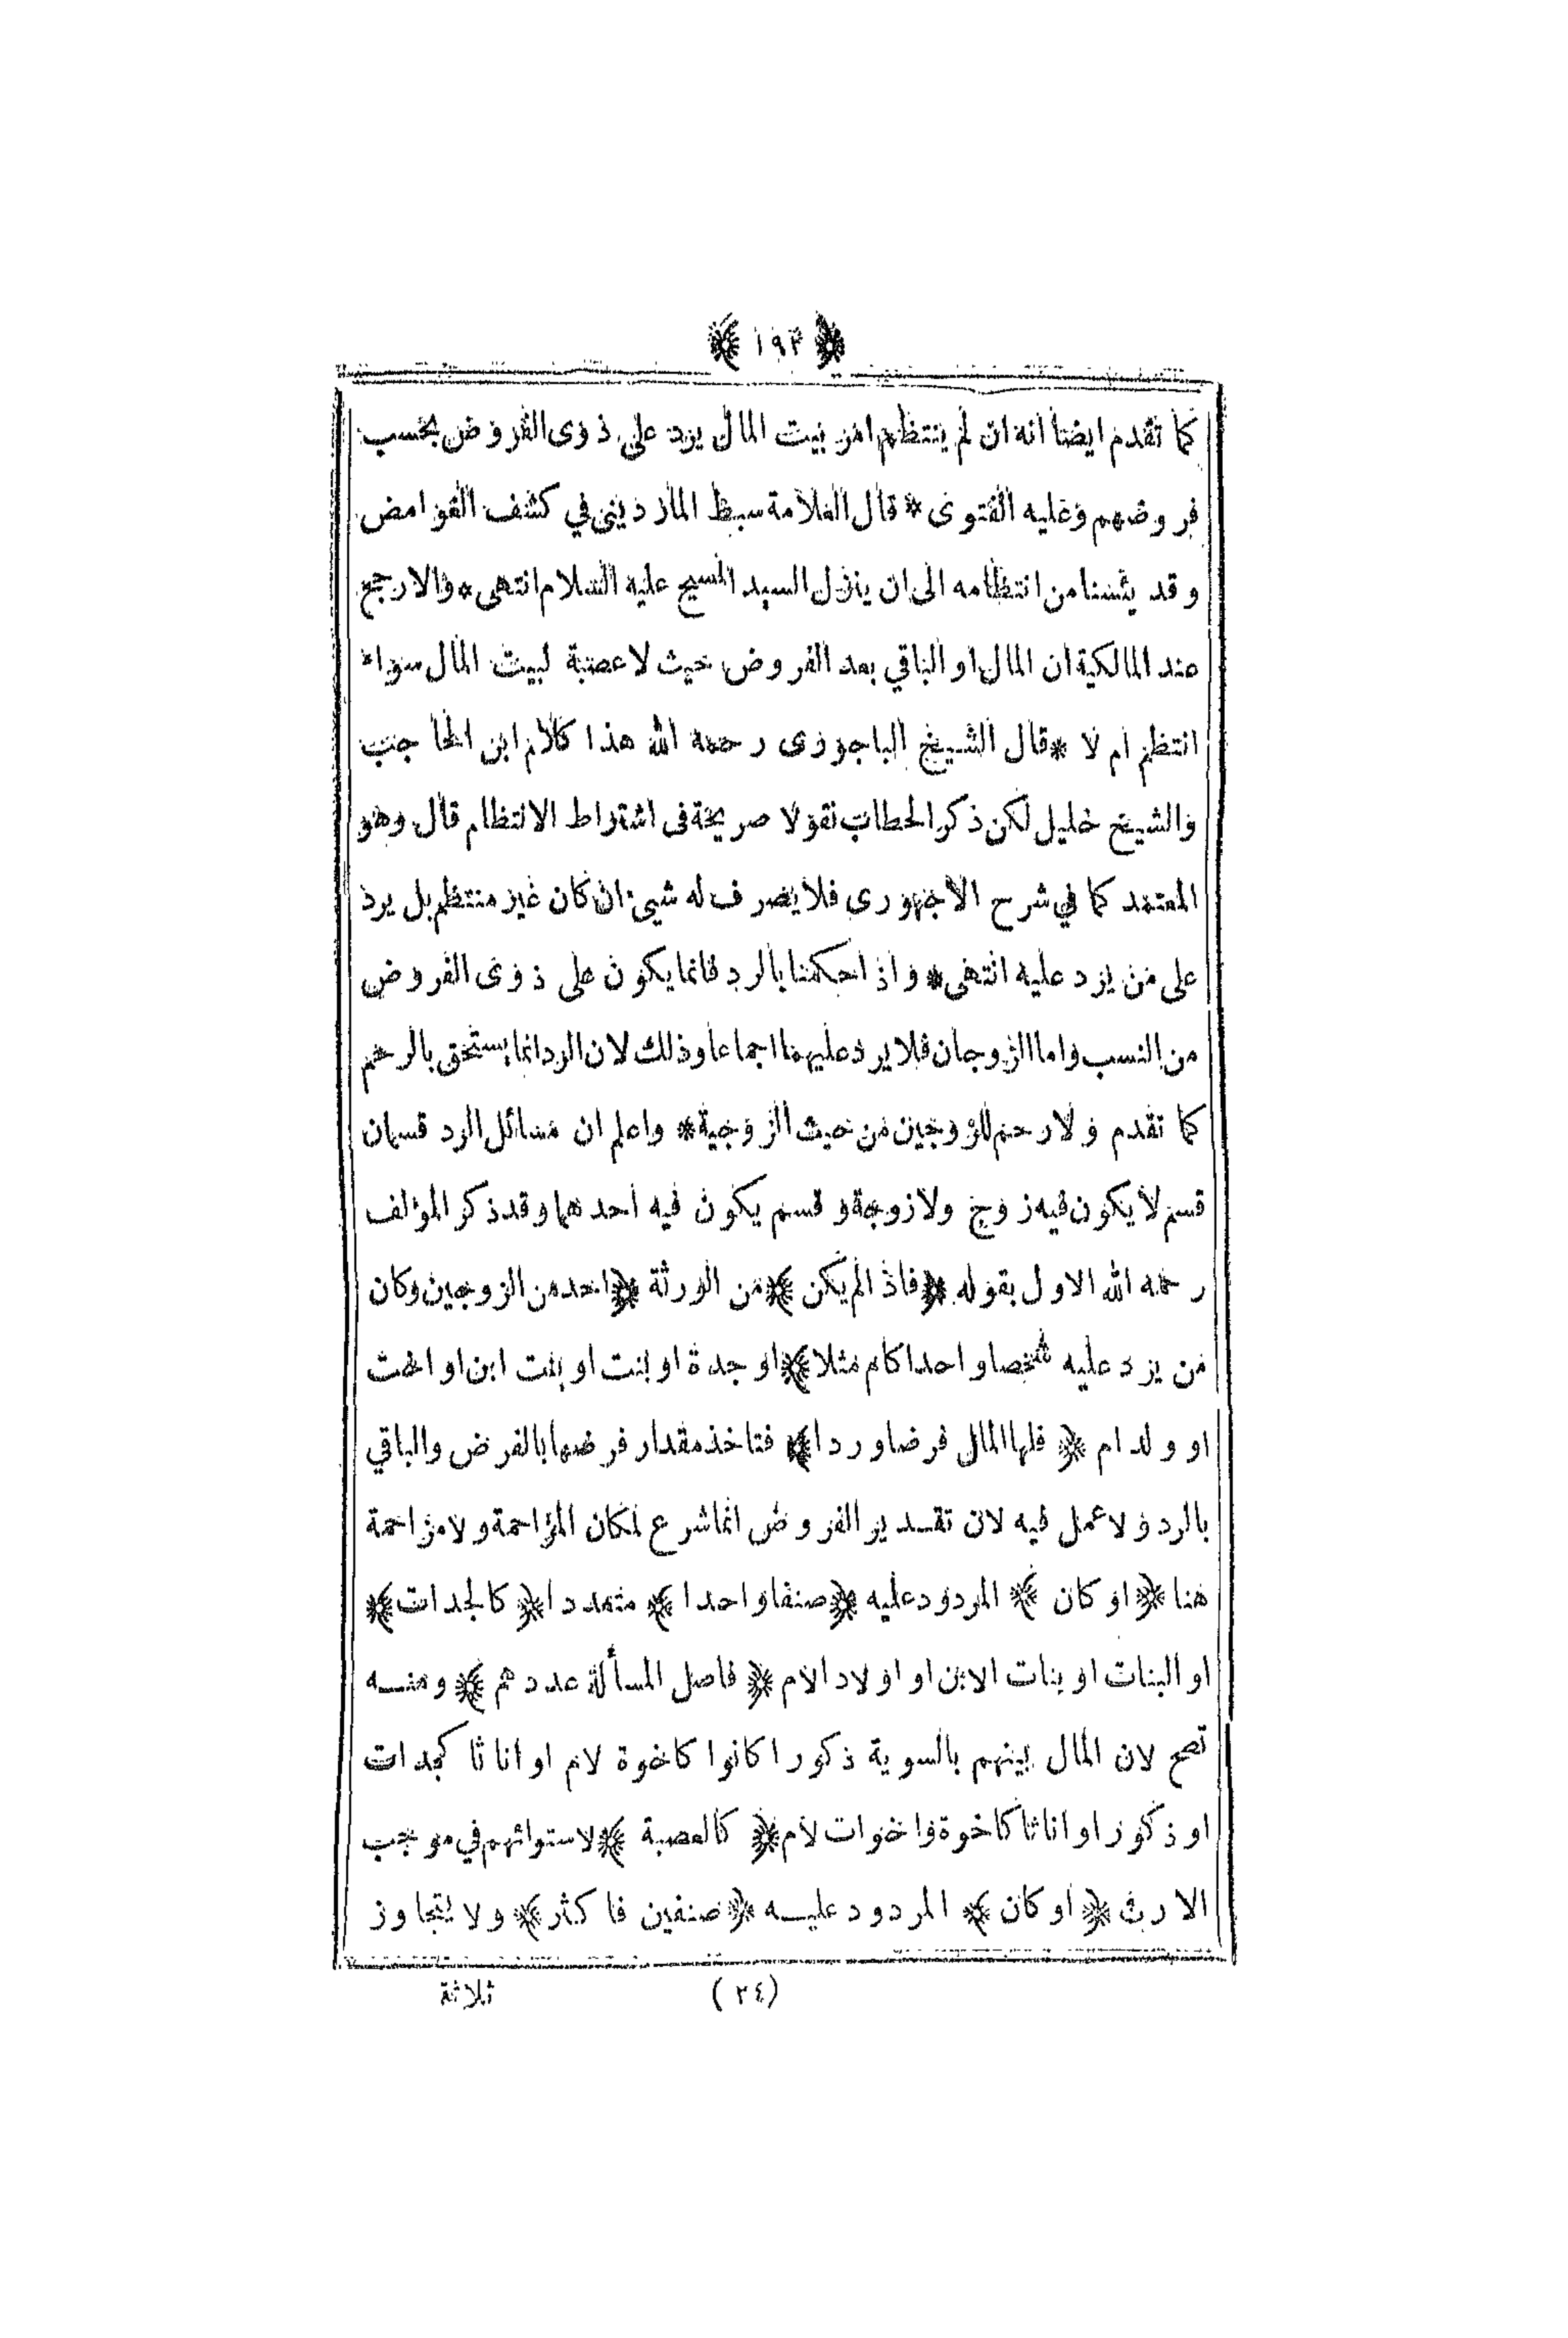 ﴿ ١٩٣ ﴾
كما تقدم ايضا انه ان لم ينتظم امر بيت المال يرد على ذوى الفروض بحسب
فروضهم وعليه الفتوى * قال العلامة سبط الماردينى في كشف الغوامض
وقد يئسنا من انتظامه الى ان ينزل السيد المسيح عليه السلام انتهى * والارجح
عند المالكية ان المال او الباقي بعد الفروض حيث لا عصبة لبيت المال سواء
انتظم ام لا * قال الشيخ الباجورى رحمه الله هذا كلام ابن الحاجب
والشيخ خليل لكن ذكر الحطاب نقولا صريحة فى اشتراط الانتظام قال وهو
المعتمد كما في شرح الاجهورى فلا يصرف له شيئ ان كان غير منتظم بل يرد
على من يرد عليه انتهى * واذا حكمنا بالرد فانما يكون على ذوى الفروض
من النسب واما الزوجان فلا يرد عليهما اجماعا وذلك لان الرد انما يستحق بالرحم
كما تقدم ولا رحم للزوجين من حيث الزوجية * واعلم ان مسائل الرد قسمان
قسم لا يكون فيه زوج ولا زوجة وقسم يكون فيه احدهما وقد ذكر المؤلف
رحمه الله الاول بقوله ﴿ فاذا لم يكن ﴾ من الورثة ﴿ احد من الزوجين وكان
من يرد عليه شخصا واحدا كام مثلا ﴾ او جدة او بنت او بنت ابن او اخت
او ولد ام ﴿ فلها المال فرضا وردا ﴾ فتاخذ مقدار فرضها بالفرض والباقي
بالرد ولا عمل فيه لان تقدير الفروض انما شرع لمكان المزاحمة ولا مزاحمة
هنا ﴿ او كان ﴾ المردود عليه ﴿ صنفا واحدا ﴾ متعددا ﴿ كالجدات ﴾
او البنات او بنات الابن او اولاد الام ﴿ فاصل المسألة عددهم ﴾ ومنه
تصح لان المال بينهم بالسوية ذكورا كانوا كاخوة لام او اناثا كجدات
او ذكورا واناثا كاخوة واخوات لام ﴿ كالعصبة ﴾ لاستوائهم في موجب
الارث ﴿ او كان ﴾ المردود عليه ﴿ صنفين فاكثر ﴾ ولا يتجاوز
(٢٤) ثلاثة